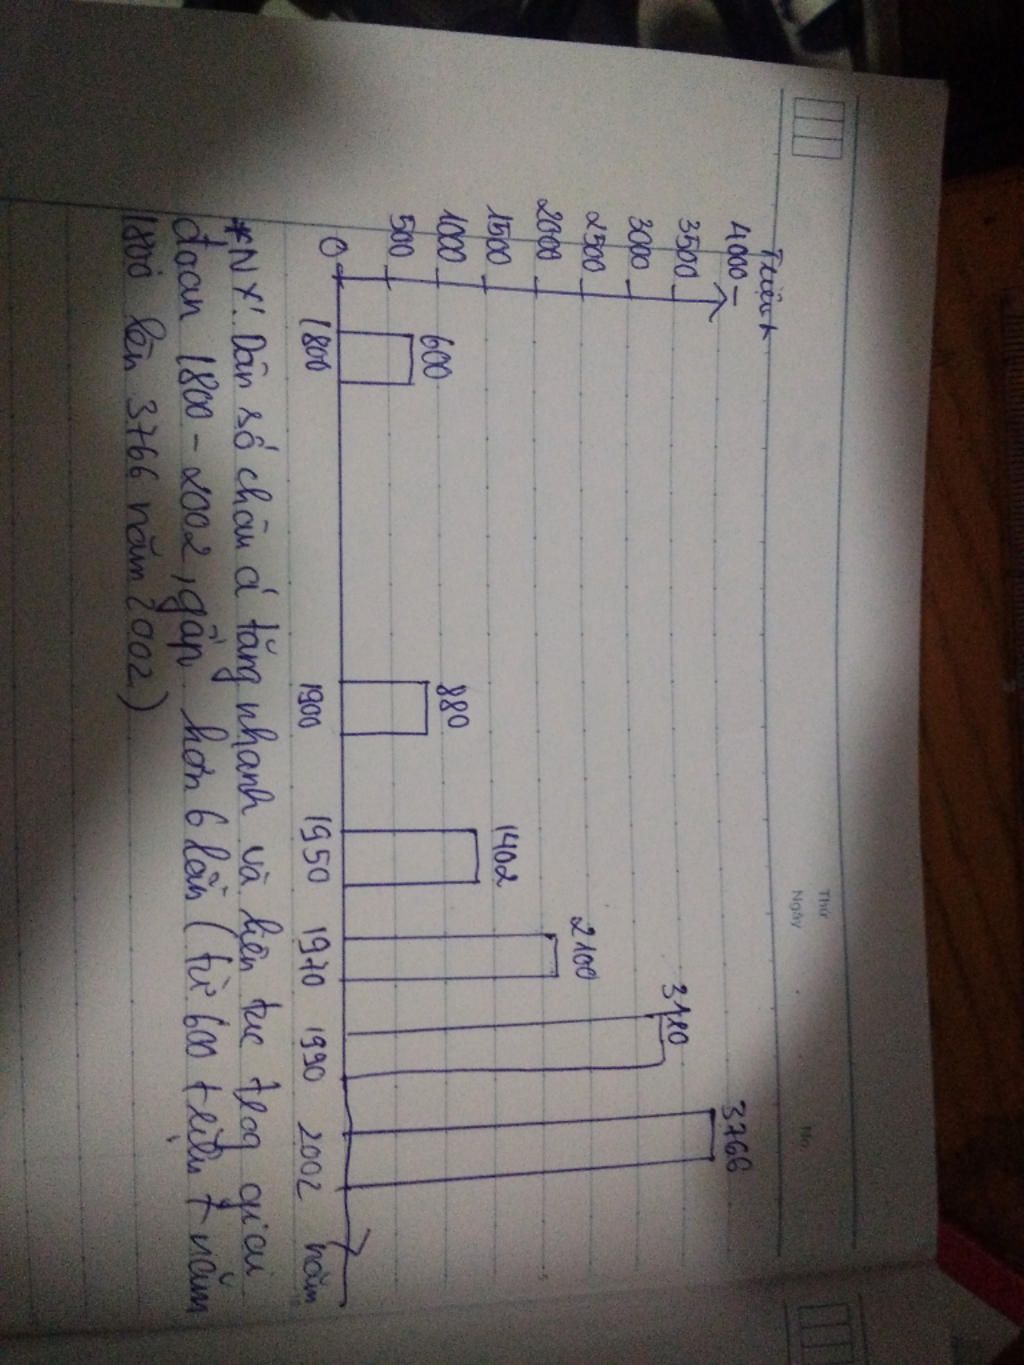 Thứ
Ngày
No.
Triệu
4000
3500
3000
2500
2000
1500
1000
500
0
600
880
1402
2100
3110
3766
1800 1900 1950 1970 1990 2002 năm
*NX: Dân số châu á tăng nhanh và liên tục trog giai
đoạn 1800 - 2002, gấp hơn 6 lần (từ 600 triệu năm
1800 lên 3766 năm 2002)